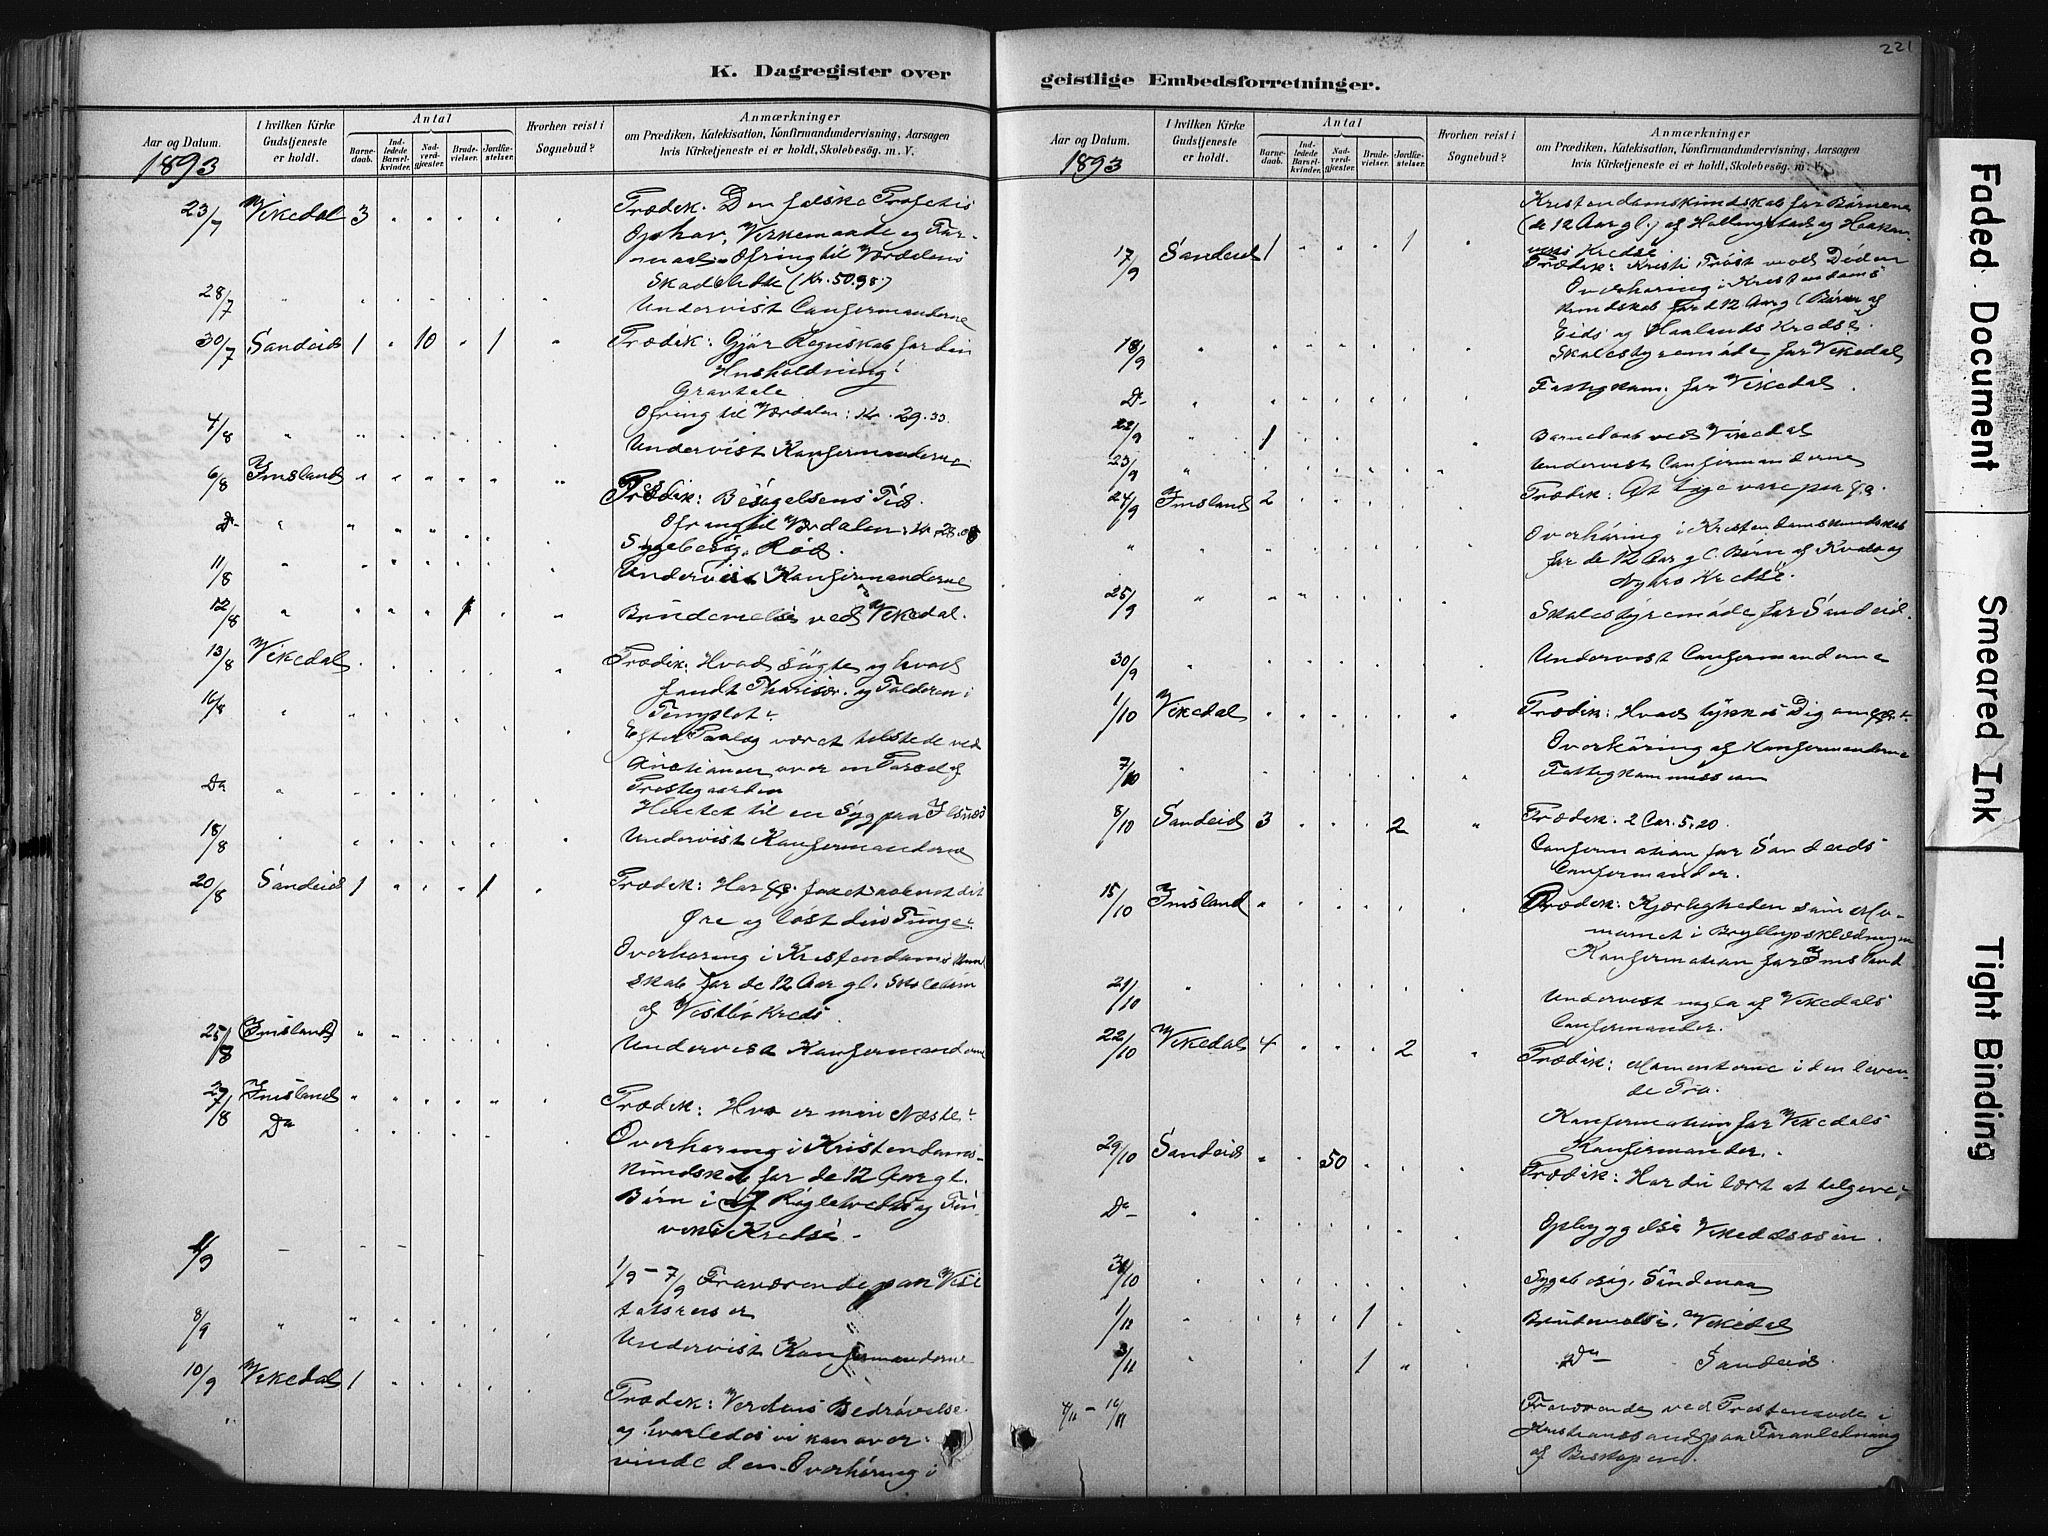 221
K. Dagregister over
geistlige Embedsforretninger.
Aar og Datum.
1893
I hvilken Kirke Gudstjeneste er holdt.
Antal
Barnedaab.
Indledede Barselkvinder.
Nadverdgjester.
Brudevielser.
Jordfæstelser.
Hvorhen reist i Sognebud?
Anmærkninger
om Prædiken, Katekisation, Konfirmandundervisning, Aarsagen
hvis Kirketjeneste ei er holdt, Skolebesøg. m. V.
23/7 Vikedal 3 Prædik. Den falske Profetis
Ophav, Virkemaade og For-
maal. Ofring til Værdalens
Skadelidte (Kr. 50.95)
28/7 " Undervist Confirmanderne
30/7 Sandeid 1 " 10 " 1 " Prædik: Gjør Regnskab for din
Husholdning!
Gravtale
Ofring til Værdalen: Kr. 29.33
4/8 " Undervist Konfirmanderne
6/8 Imsland Prædik: Besøgelsens Tid.
Ofring til Værdalen: Kr.
Do " Sygebesøg, Rød.
11/8 " Undervist Konfirmanderne
12/8 " 1 Brudevielse ved Vikedal.
13/8 Vikedal Prædik: Hvad søgte og hvad
fandt Pharisær. og Tolderen i
Templet?
16/8 " Efter Paalæg været tilstede ved
over en Part af
Prestegaarden
Do " Hentet til en Syg paa Ilsnes
18/8 " Undervist Konfirmanderne
20/8 Sandeid 1 " " " 1 " Prædik: Har
Øre og løst din Tunge?
Overhøring i Kristendoms Kund
skab for de 12 Aar gl. Skolebørn
af Vestbø Kreds.
25/8 (Imsland) Undervist Konfirmanderne
27/8 Imsland Prædik: Hvo er min Næste?
Do Overhøring i Kristendoms-
kundskab for de 12 Aar gl.
Børn i af Røgletvedts og Fen-
Kredse.
1/9 1/9 - 7/9 Fraværende paa Visi
tatsreiser
8/9 " Undervist Konfirmanderne
10/9 Vikedal 1 Prædik: Verdens Bedrøvelse
og hvorledes vi kan over-
vinde den. Overhøring i
Aar og Datum.
1893
I hvilken Kirke Gudstjeneste er holdt.
Antal
Barnedaab.
Indledede Barselkvinder.
Nadverdgjester.
Brudevielser.
Jordfæstelser.
Hvorhen reist i Sognebud?
Anmærkninger
om Prædiken, Katekisation, Konfirmandundervisning, Aarsagen
hvis Kirketjeneste ei er holdt, Skolebesøg. m. V.
Kristendomskundskab for Børnene
(de 12 Aar gl.) af Hallingstad og Haakon-
Kredse
17/9 Sandeid 1 " " " 1 " Prædik: Kristi Trøst ved Døden
Overhøring i Kristendoms
kundskab for d 12 Aar g (Børn af
Eids og Haalands Kredse
18/9 " Skolestyremøde for Vikedal
Do " Fattigkom. for Vikedal.
22/9 " 1 Barnedaab ved Vikedal
23/9 " Undervist Confirmanderne
24/9 Imsland 2 Prædik: At
" Overhøring i Kristendomskundskab
for de 12 Aar gl. Børn af Kvalo og
Nybro Kredse.
25/9 " Skolestyremøde for Sandeid.
30/9 " Undervist Confirmanderne
1/10 Vikedal Prædik: Hvad tykkes Dig om
Overhøring af Konfirmanderne
7/10 " Fattigkommission
8/10 Sandeid 3 " " " 2 " Prædik. 2 Cor. 5, 20
Confirmation for Sandeids
Confirmander.
15/10 Imsland Prædik: Kjærligheden som
i Bryllupsklædningen
Konfirmation for Imsland
21/10 " Undervist nogle af Vikedals
Confirmander.
22/10 Vikedal 4 " " " 2 " Prædik: Momenterne i den leven-
de Tro.
Konfirmation for Vikedals
Konfirmander.
29/10 Sandeid " " 50 Prædik: Har du lært at tilgive?
Do " Opbyggelse Vikedalsøsen.
30/10 Sygebesøg, Søndenaa
1/11 " 1 Brudevielse, Vikedal
3/11 " 1 " Do Sandeid.
9/11 - 10/11 Fraværende ved Prestemøde i
Kristianssand paa Foranledning
af Biskopen.
Faded Document
Smeared Ink
Tight Binding